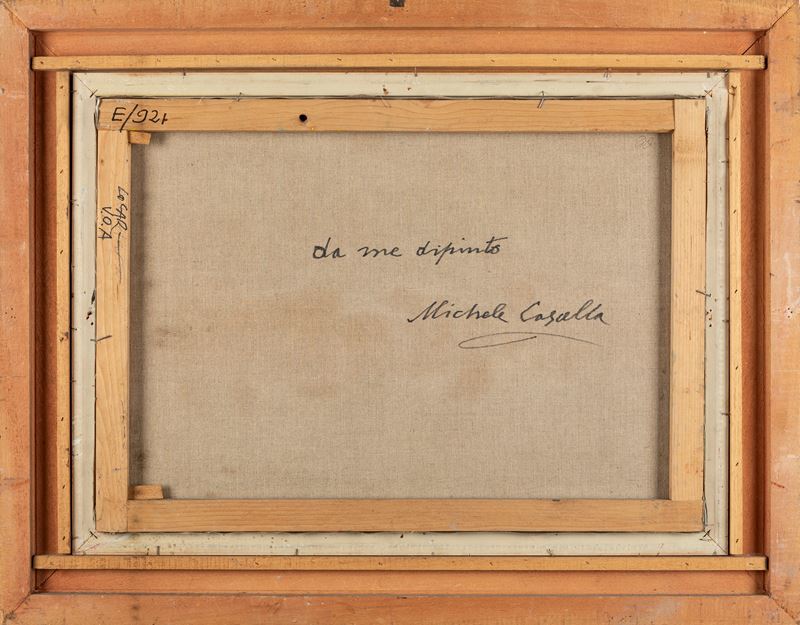 E/921
V.O.A
da me dipinto
Michele Cascella